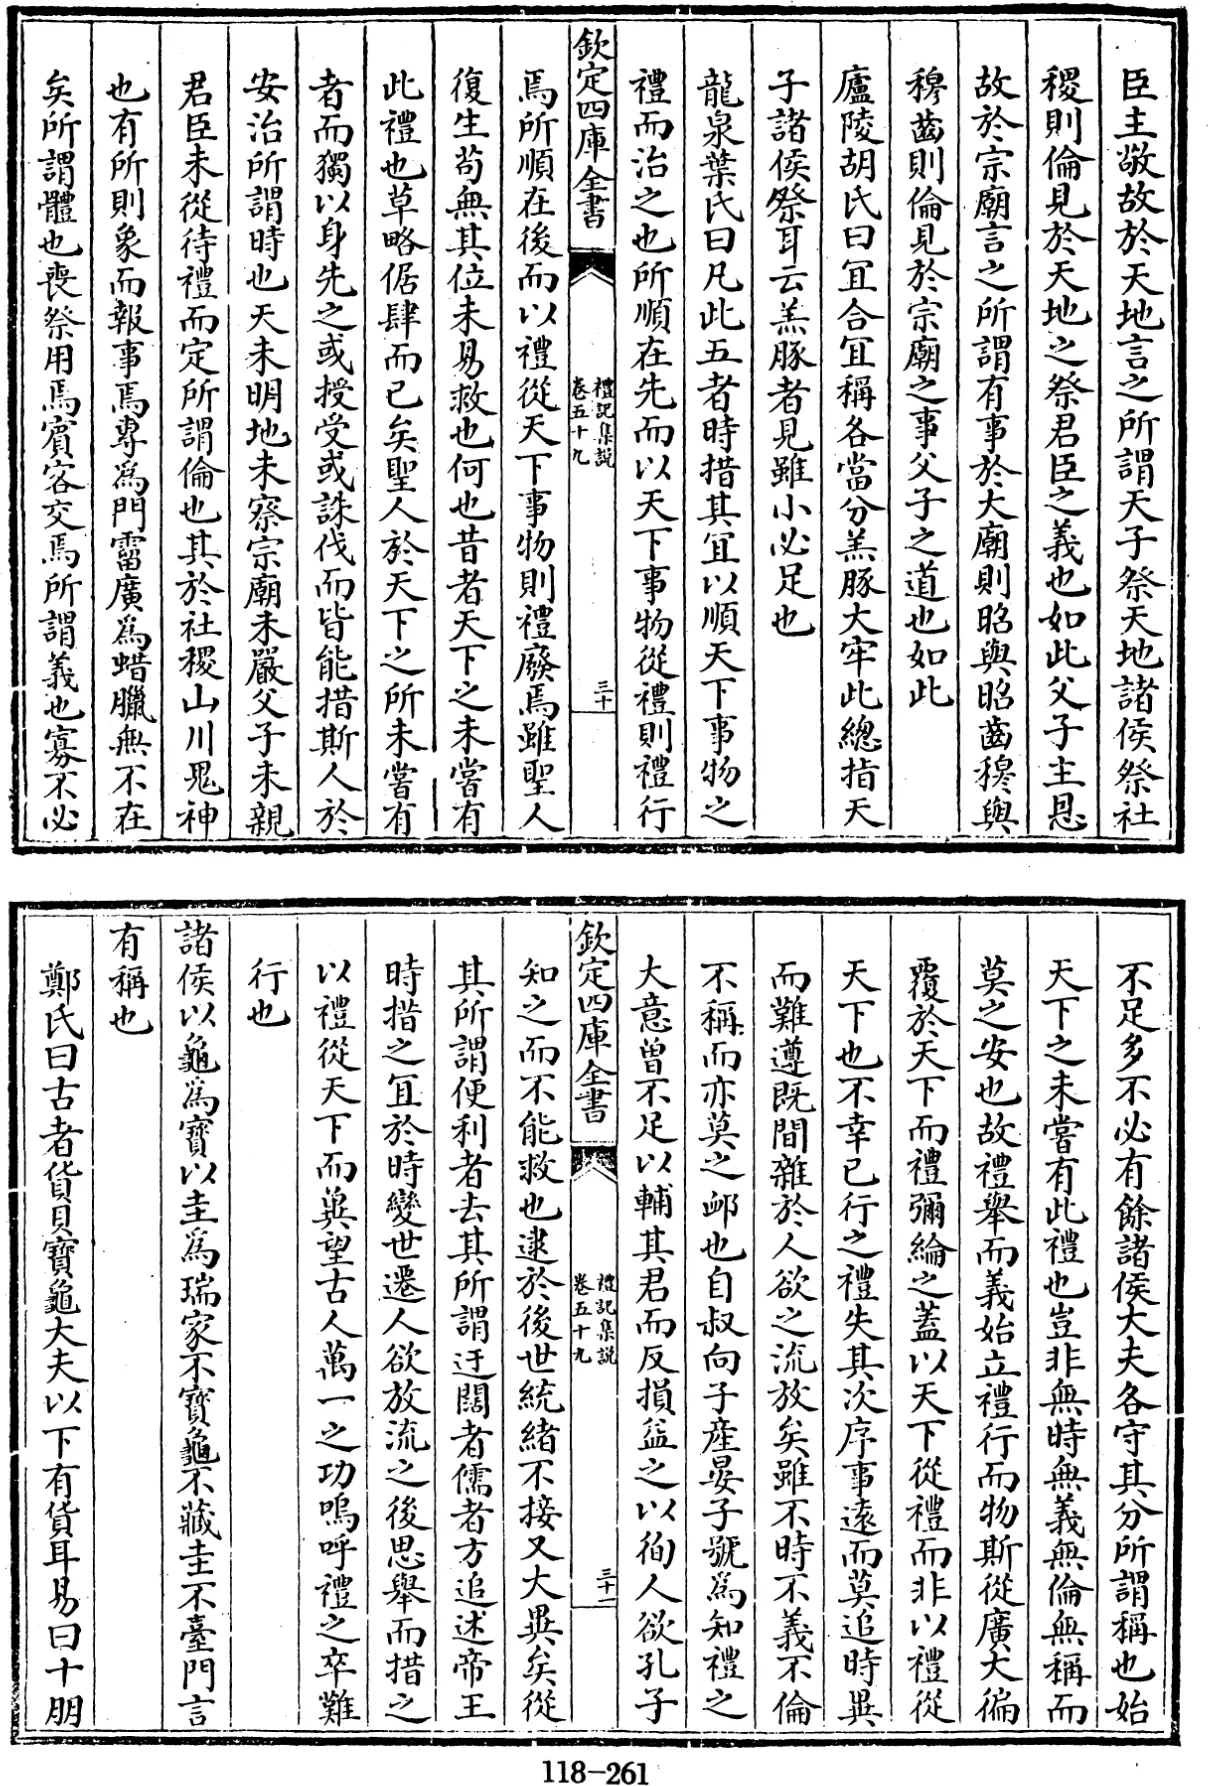 臣主敬故於天地言之所謂天子祭天地諸侯祭社
稷則倫見於天地之祭君臣之義也如此父子主恩
故於宗廟言之所謂有事於大廟則昭與昭齒穆與
穆齒則倫見於宗廟之事父子之道也如此
廬陵胡氏曰冝合冝稱各當分羔豚大牢此總指天
子諸侯祭耳云羔豚者見雖小必足也
龍泉葉氏曰凡此五者時措其冝以順天下事物之
禮而治之也所順在先而以天下事物從禮則禮行
欽定四庫全書
禮記集説
卷五十九
三十
焉所順在後而以禮從天下事物則禮廢焉雖聖人
復生茍無其位未易救也何也昔者天下之未嘗有
此禮也草略倨肆而已矣聖人於天下之所未嘗有
者而獨以身先之或授受或誅伐而皆能措斯人於
安治所謂時也天未明地未察宗廟未嚴父子未親
君臣未從待禮而定所謂倫也其於社稷山川鬼神
也有所則象而報事焉專為門霤廣為蜡臘無不在
矣所謂體也喪祭用焉賓客交焉所謂義也寡不必
不足多不必有餘諸侯大夫各守其分所謂稱也始
天下之未嘗有此禮也豈非無時無義無倫無稱而
莫之安也故禮舉而義始立禮行而物斯從廣大徧
覆於天下而禮彌綸之蓋以天下從禮而非以禮從
天下也不幸已行之禮失其次序事遠而莫追時異
而難遵既間雜於人欲之流放矣雖不時不義不倫
不稱而亦莫之䘏也自叔向子產晏子號為知禮之
大意曽不足以輔其君而反損益之以徇人欲孔子
欽定四庫全書
禮記集説
卷五十九
三十一
知之而不能救也逮於後世統緒不接又大異矣從
其所謂便利者去其所謂迂闊者儒者方追述帝王
時措之冝於時變世遷人欲放流之後思舉而措之
以禮從天下而兾望古人萬一之功嗚呼禮之卒難
行也
諸侯以龜為寶以圭為瑞家不寶龜不藏圭不臺門言
有稱也
鄭氏曰古者貨貝寶龜大夫以下有貨耳易曰十朋
118-261